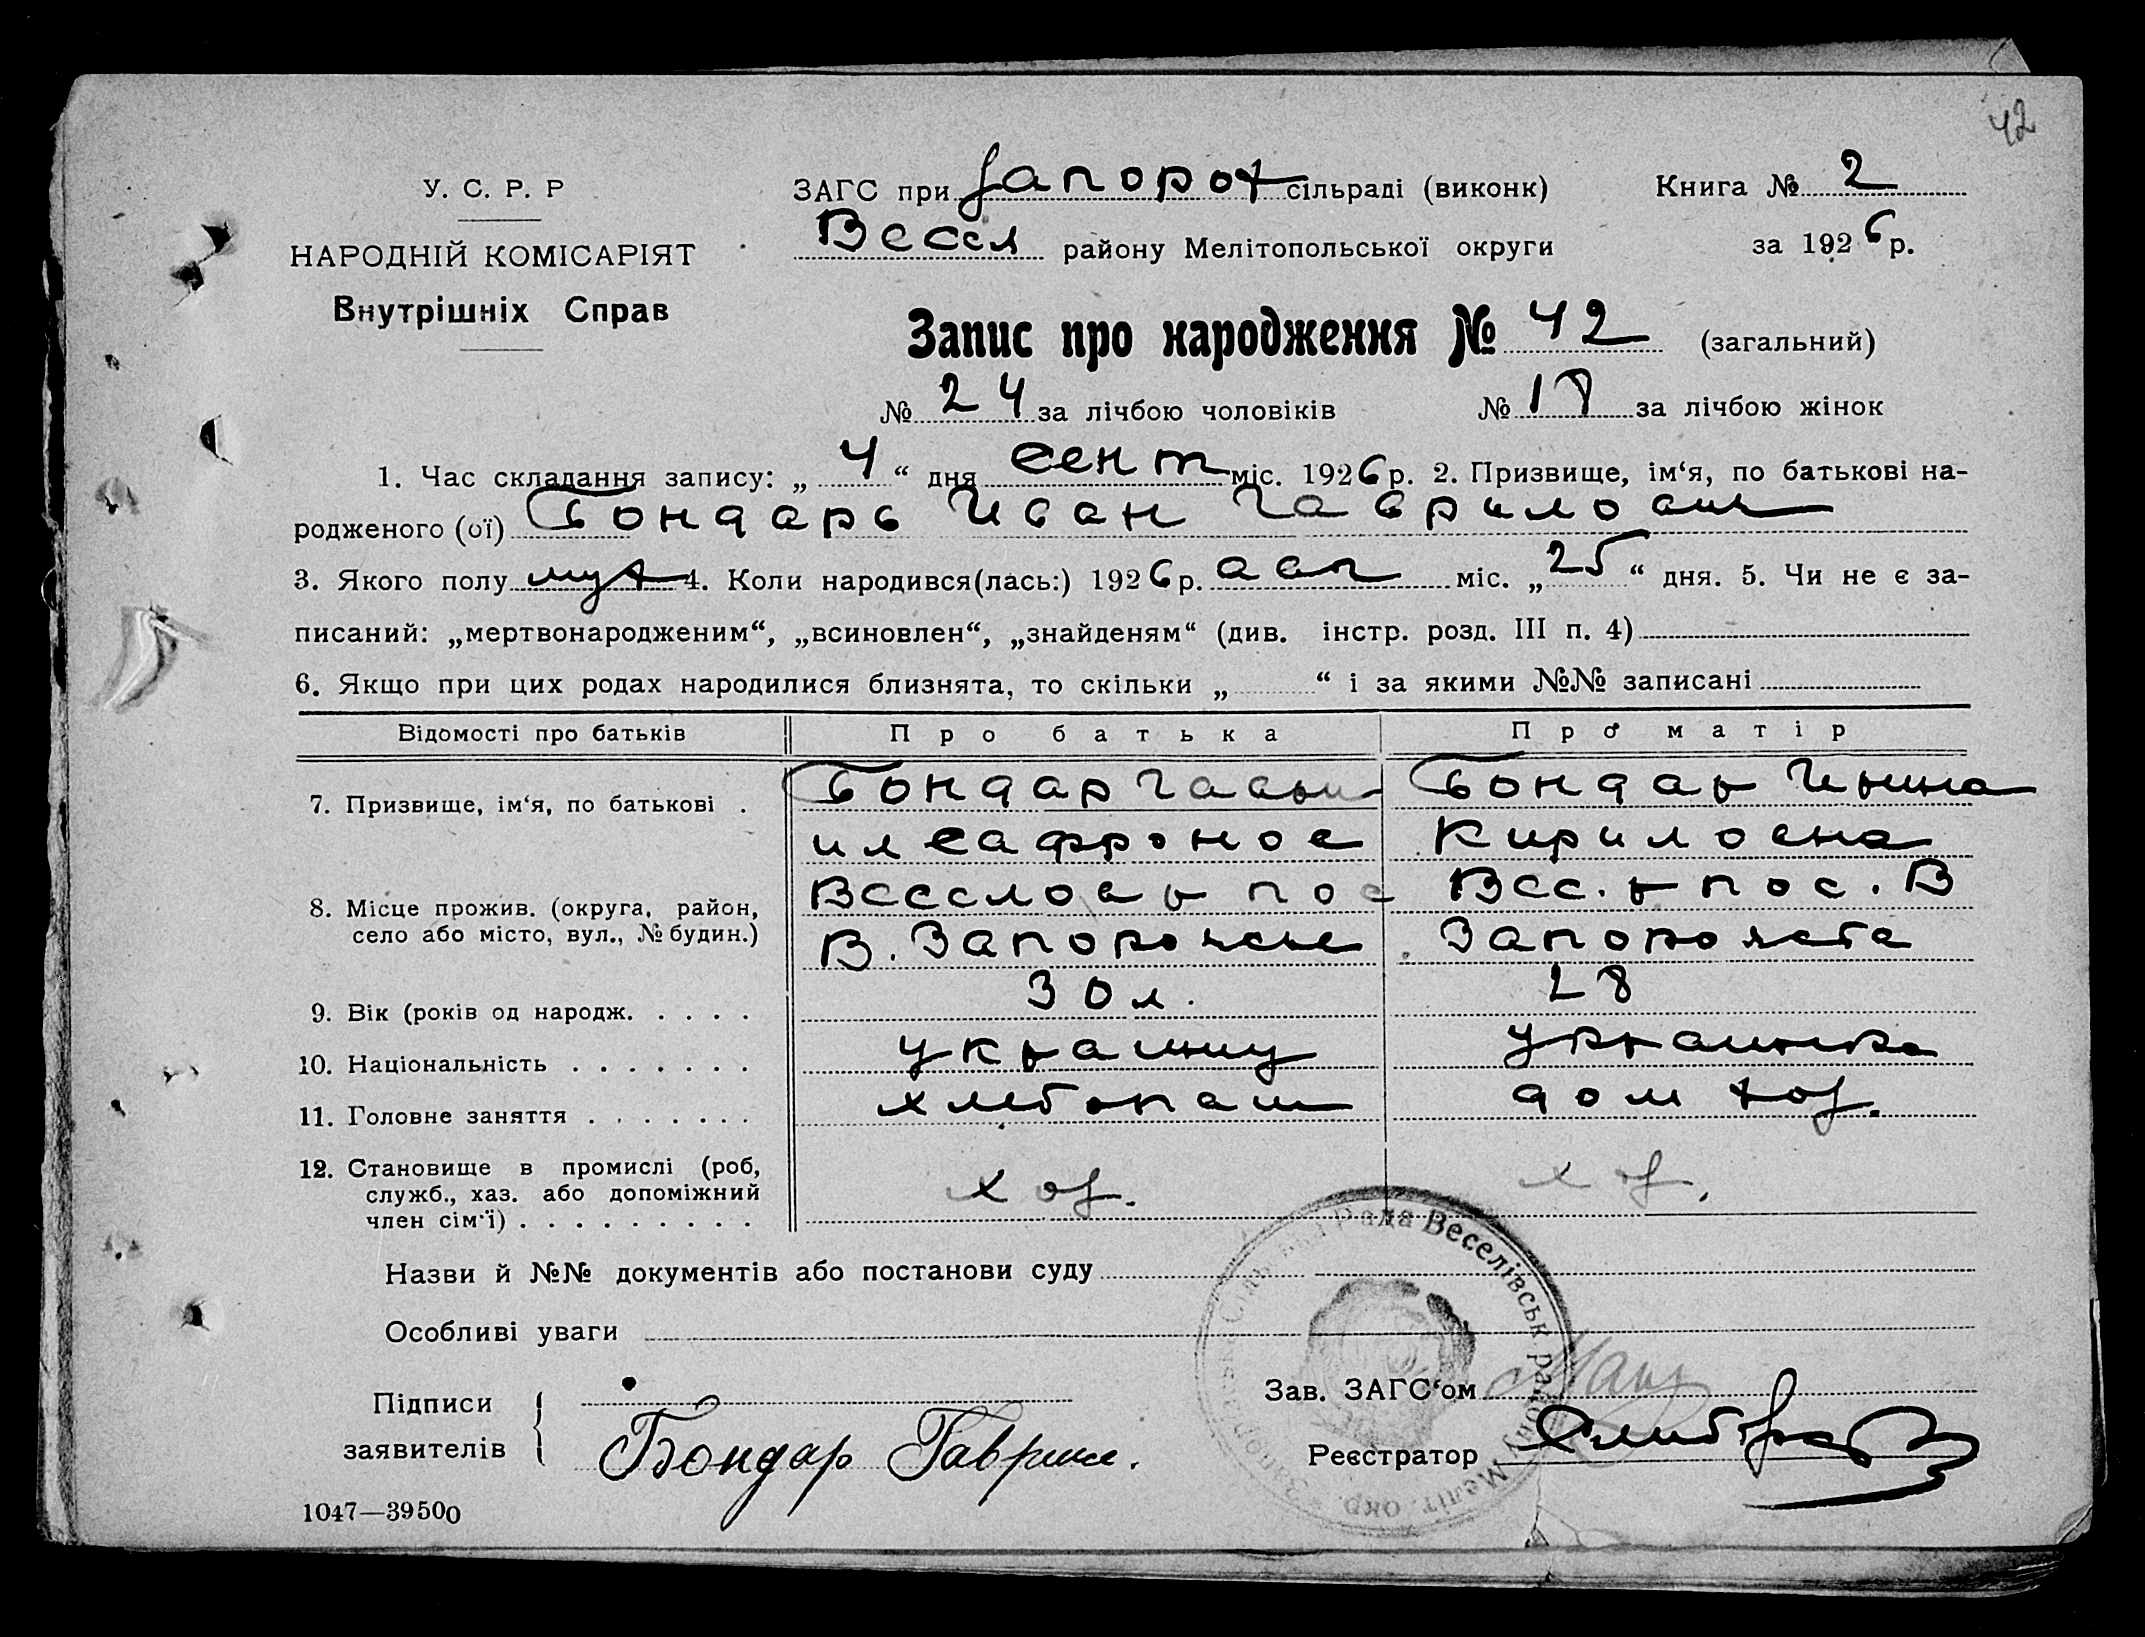 42
У. С. Р. Р
НАРОДНІЙ КОМІСАРІЯТ
Внутрішніх Справ
ЗАГС при Запорож сільраді (виконк)
Весел району Мелітопольської округи
Книга № 2
за 1926 р.
Запис про народження № 42 (загальний)
№ 24 за лічбою чоловіків № 18 за лічбою жінок
1. Час складання запису: „ 4 “ дня сент міс. 1926 р. 2. Призвище, ім‘я, по батькові на-
родженого (ої) Бондарь Иван Гаврилович
3. Якого полу муж 4. Коли народився(лась:) 1926 р. авг міс. „ 25 “ дня. 5. Чи не є за-
писаний: „мертвонародженим“, „всиновлен“, „знайденям“ (див. інстр. розд. III п. 4)
6. Якщо при цих родах народилися близнята, то скільки „ “ і за якими №№ записані
Відомості про батьків Про батька Про матір
7. Призвище, ім‘я, по батькові . Бондар Гаври Бондар Ирина
ил Сафронов Кириловна
8. Місце прожив. (округа, район, Веселов р пос Вес. р пос. В
село або місто, вул., № будин.) В. Запорожье Запорожье
9. Вік (років од народж. . . . . 30 л. 28
10. Національність . . . . . . . украинц украинка
11. Головне заняття . . . . . . . хлебопаш дом хоз.
12. Становище в промислі (роб,
служб., хаз. або допоміжний хоз. хоз.
член сім‘ї) . . . . . . . . .
Назви й №№ документів або постанови суду
Особливі уваги
Підписи
заявителів
Бондар Гаврил.
Зав. ЗАГС‘ом
Реєстратор
Рада Веселівськ району Меліт. окр. Запор
1047—39500